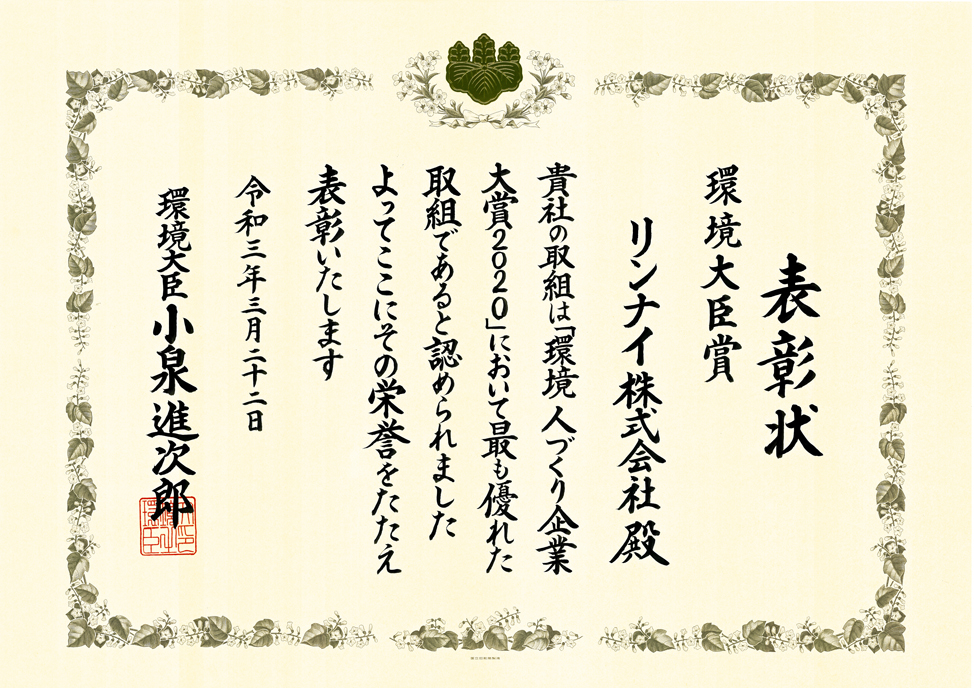 表彰状
環境大臣賞
リンナイ株式会社 殿
貴社の取組は「環境 人づくり企業
大賞2020」において最も優れた
取組であると認められました
よってここにその栄誉をたたえ
表彰いたします
令和三年三月二十二日
環境大臣 小泉進次郎